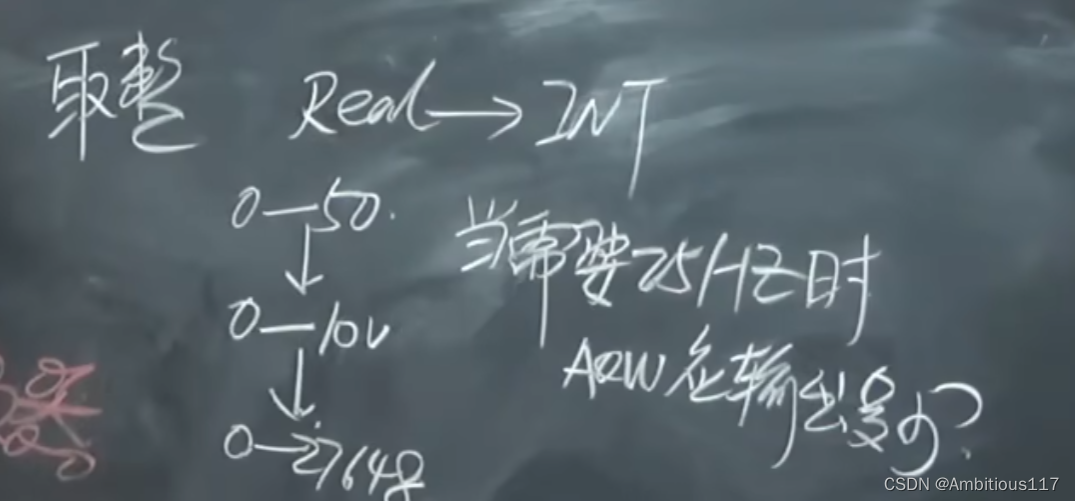 取整 Real→INT
0—50.
0—10V
0—27648
当需要25HZ时
AQW应输出多少?
CSDN @Ambitious117